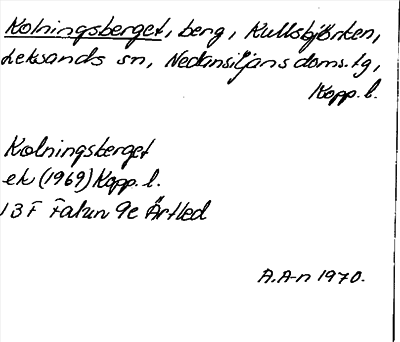 Kolningsberget, berg, Kullsbjörken,
Leksands sn, Nedansiljans doms.lg,
Kopp. l.
Kolningsberget
ek (1969) Kopp. l.
13 F Falun 9e Ärtled
A.A-n 1970.